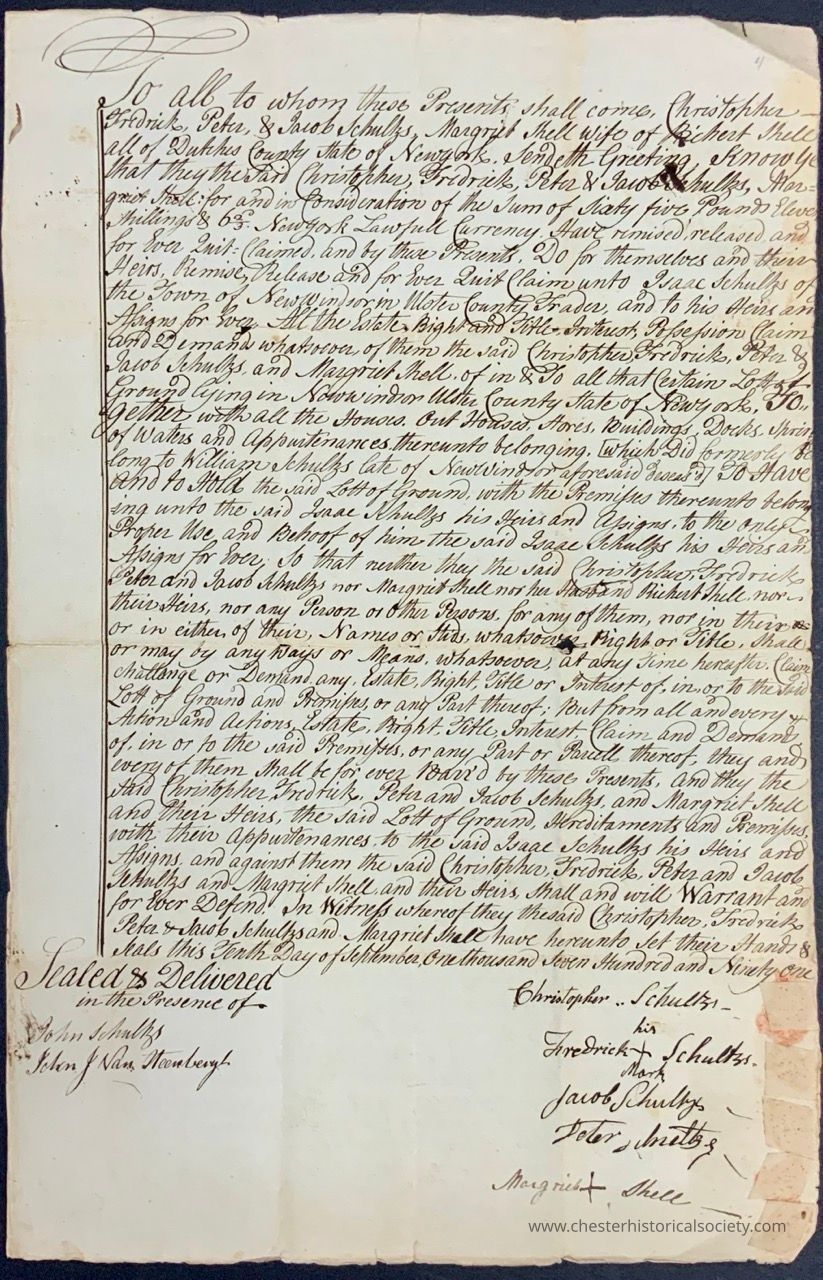 To all to whom these Presents shall come, Christopher
Fredrick, Peter, & Jacob Schultzs, Margriet Shell wife of Richert Shell
all of Dutches County State of Newyork, Sendeth Greeting, Know Ye
that they the said Christopher, Fredrick, Peter & Jacob Schultzs, Mar=
griet Shell: for and in Consideration of the Sum of Sixty five Pounds Eleven
Shillings & 6 Newyork Lawfull Currency, Have remised, released, and
for Ever Quit=Claimed, and by these Presents, Do for themselves and their
Heirs, Remise, Release and for Ever Quit Claim unto Isaac Schultzs of
the Town of Newwindsor in Ulster County Trader, and to his Heirs and
Assigns for Ever, All the Estate Right and Title, Interest, Possession Claim
and Demand whatsoever, of them the said Christopher, Fredrick, Peter &
Jacob Schultzs, and Margriet Shell, of in & To all that Certain Lott of
Ground lying in Newwindsor Ulster County State of Newyork, To=
gether with all the Houses, Out Houses, Stores, Buildings, Docks, Sprin
of Waters and Appurtenances thereunto belonging, [which Did formerly be
long to William Schultzs late of Newwindsor aforesaid deceas'd] To Have
And to Hold the said Lott of Ground, with the Premises thereunto belong
ing unto the said Isaac Schultzs his Heirs and Assigns, to the only
Proper Use and Behoof of him the said Isaac Schultzs his Heirs an
Assigns for Ever; So that neither they the said Christopher, Fredrick
Peter and Jacob Schultzs nor Margriet Shell nor her Husband Richert Shell, nor
their Heirs, nor any Person or Other Persons, for any of them, nor in their
or in either, of their, Names or Steds, whatsoever, Right or Title, Shall
or may by any Ways or Means, whatsoever, at any time hereafter, Claim
Challange or Demand any, Estate, Right, Title or Interest of, in, or to the said
Lott of Ground and Premisses, or any Part thereof; But from all and every
Action and Actions, Estate, Right, Title, Interest, Claim and Demand
of, in or to the said Premisses, or any Part or Parcell thereof, they and
every of them shall be for ever Barr'd by these Presents, And they the
Said Christopher, Fredrick, Peter and Jacob Schultzs, and Margriet Shell
and their Heirs, the said Lott of Ground, Hereditaments and Premisses,
with their Appurtenances to the said Isaac Schultzs his Heirs and
Assigns, and against them the said Christopher, Fredrick, Peter and Jacob
Schultzs and Margriet Shell, and their Heirs, Shall and will Warrant and
for Ever Defend. In Witness whereof they the said Christopher, Fredrick
Peter & Jacob Schultzs and Margriet Shell have hereunto Set their Hands &
Seals this Tenth Day of September, One thousand Seven Hundred and Ninety one
Sealed & Delivered
in the Presence of
Christopher Schultzs
John Schultzs
his
Fredrick + Schultzs
Mark
John J Van Steenbergh
Jacob Schultzs
Peter Schultzs
Margriet + Shell
www.chesterhistoricalsociety.com